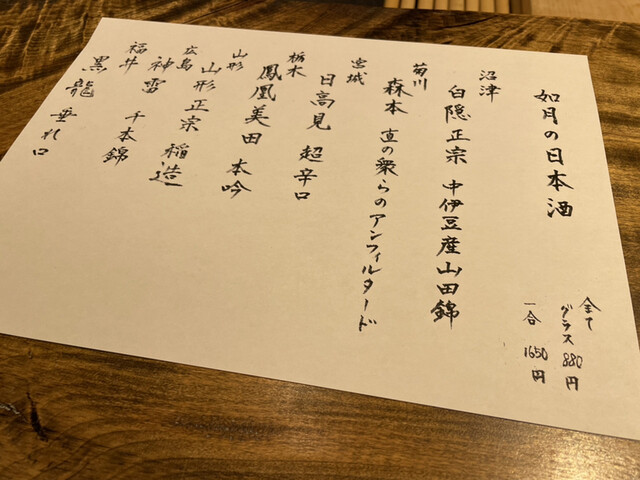 如月の日本酒
全て
グラス 880円
一合 1650円
沼津
白隠正宗 中伊豆産山田錦
菊川
森本 直の衆らのアンフィルタード
宮城
日高見 超辛口
栃木
鳳凰美田 本吟
山形
山形正宗 稲造
広島
神雷 千本錦
福井
黒龍 垂れ口